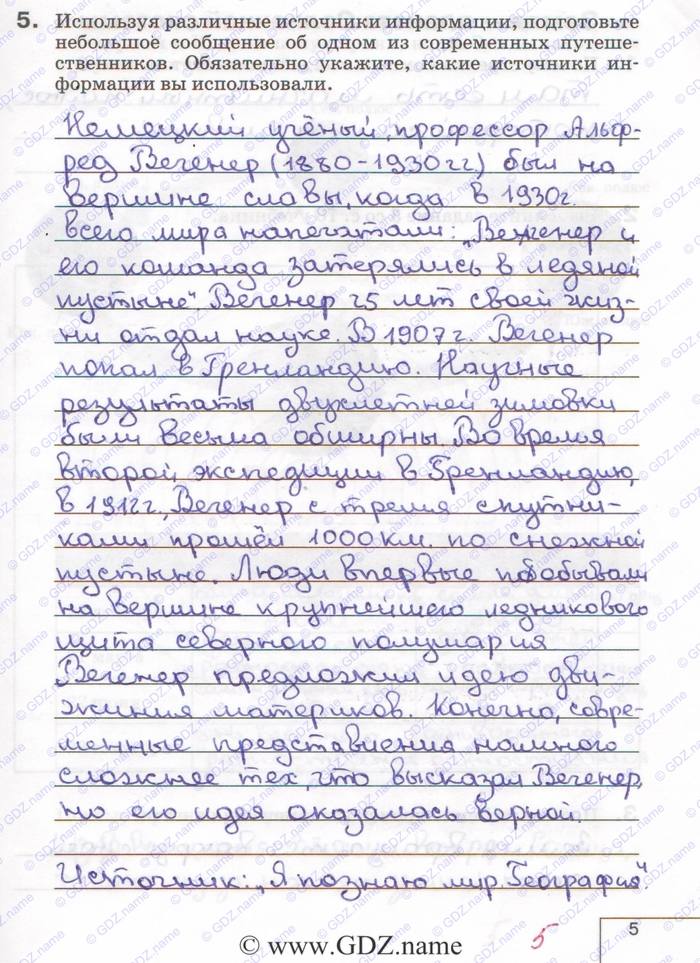 5. Используя различные источники информации, подготовьте
небольшое сообщение об одном из современных путеше-
ственников. Обязательно укажите, какие источники ин-
формации вы использовали.
Немецкий учёный, профессор Альф-
ред Вегенер (1880-1930 гг.) был на
вершине славы, когда в 1930г.
всего мира напечатали: „Вегенер и
его команда затерялись в ледяной
пустыне" Вегенер 25 лет своей жиз-
ни отдал науке. В 1907 г. Вегенер
попал в Гренландию. Научные
результаты двухлетней зимовки
были весьма обширны. Во время
второй экспедиции в Гренландию,
в 1912г., Вегенер с тремя спутни-
ками прошёл 1000 км. по снежной
пустыне. Люди впервые побывали
на вершине крупнейшего ледникового
щита северного полушария
Вегенер предложил идею дви-
жиния материков. Конечно, совре-
менные представления намного
сложнее тех, что высказал Вегенер,
но его идея оказалась верной.
Источник: „Я познаю мир. География".
5
5
© www.GDZ.name